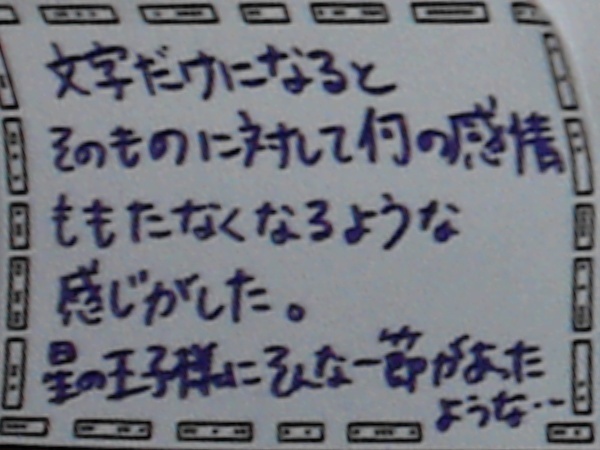 文字だけになると
そのものに対して何の感情
ももたなくなるような
感じがした。
星の王子様にそんな一節があった
ような…